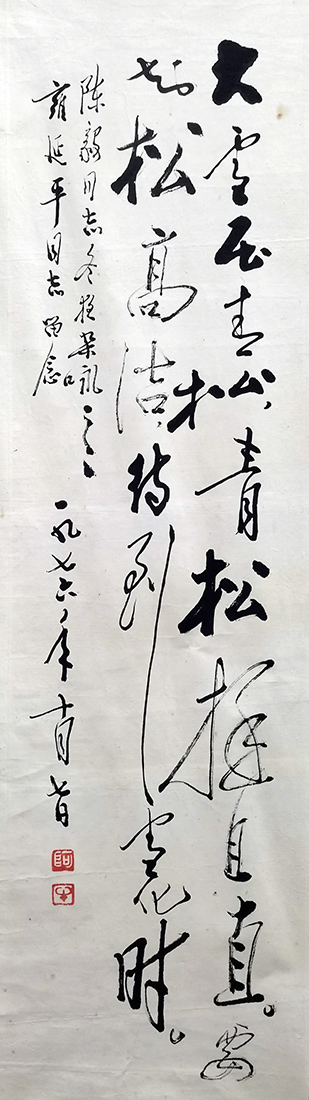 大雪压青松，青松挺且直。要
知松高洁，待到雪化时。
陈毅同志冬夜杂咏之一
雍延平同志留念
一九七六年十月七日